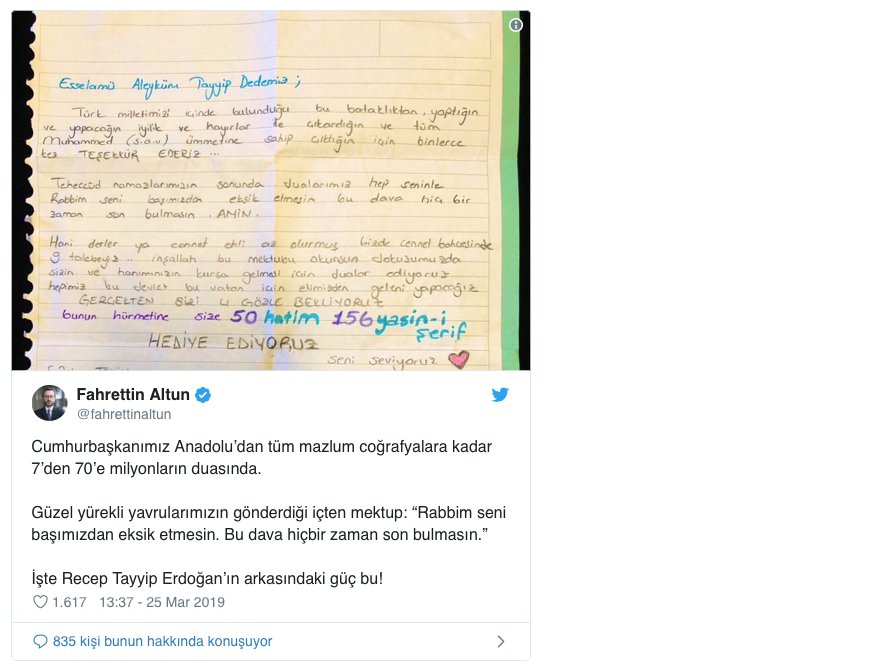 Esselamü Aleyküm Tayyip Dedemiz ;
Türk milletimizi içinde bulunduğu bu bataklıktan, yaptığın
ve yapacağın iyilik ve hayırlar ile çıkardığın ve tüm
Muhammed (s.a.v) ümmetine sahip çıktığın için binlerce
kez TEŞEKKÜR EDERİZ ...
Teheccüd namazlarımızın sonunda dualarımız hep seninle
Rabbim seni başımızdan eksik etmesin bu dava hiç bir
zaman son bulmasın . AMİN .
Hani derler ya cennet ehli az olurmuş bizde cennet bahçesinde
9 talebeyiz .. inşallah bu mektubu okursun dokuzumuzda
sizin ve hanımınızın kursa gelmesi için dualar ediyoruz
hepimiz bu devlet bu vatan için elimizden geleni yapacağız
GERÇEKTEN SİZİ 4 GÖZLE BEKLİYORUZ
bunun hürmetine size 50 hatim 156 yasin-i
şerif
HEDİYE EDİYORUZ
seni seviyoruz
Fahrettin Altun
@fahrettinaltun
Cumhurbaşkanımız Anadolu’dan tüm mazlum coğrafyalara kadar
7’den 70’e milyonların duasında.
Güzel yürekli yavrularımızın gönderdiği içten mektup: “Rabbim seni
başımızdan eksik etmesin. Bu dava hiçbir zaman son bulmasın.”
İşte Recep Tayyip Erdoğan’ın arkasındaki güç bu!
1.617 13:37 - 25 Mar 2019
835 kişi bunun hakkında konuşuyor